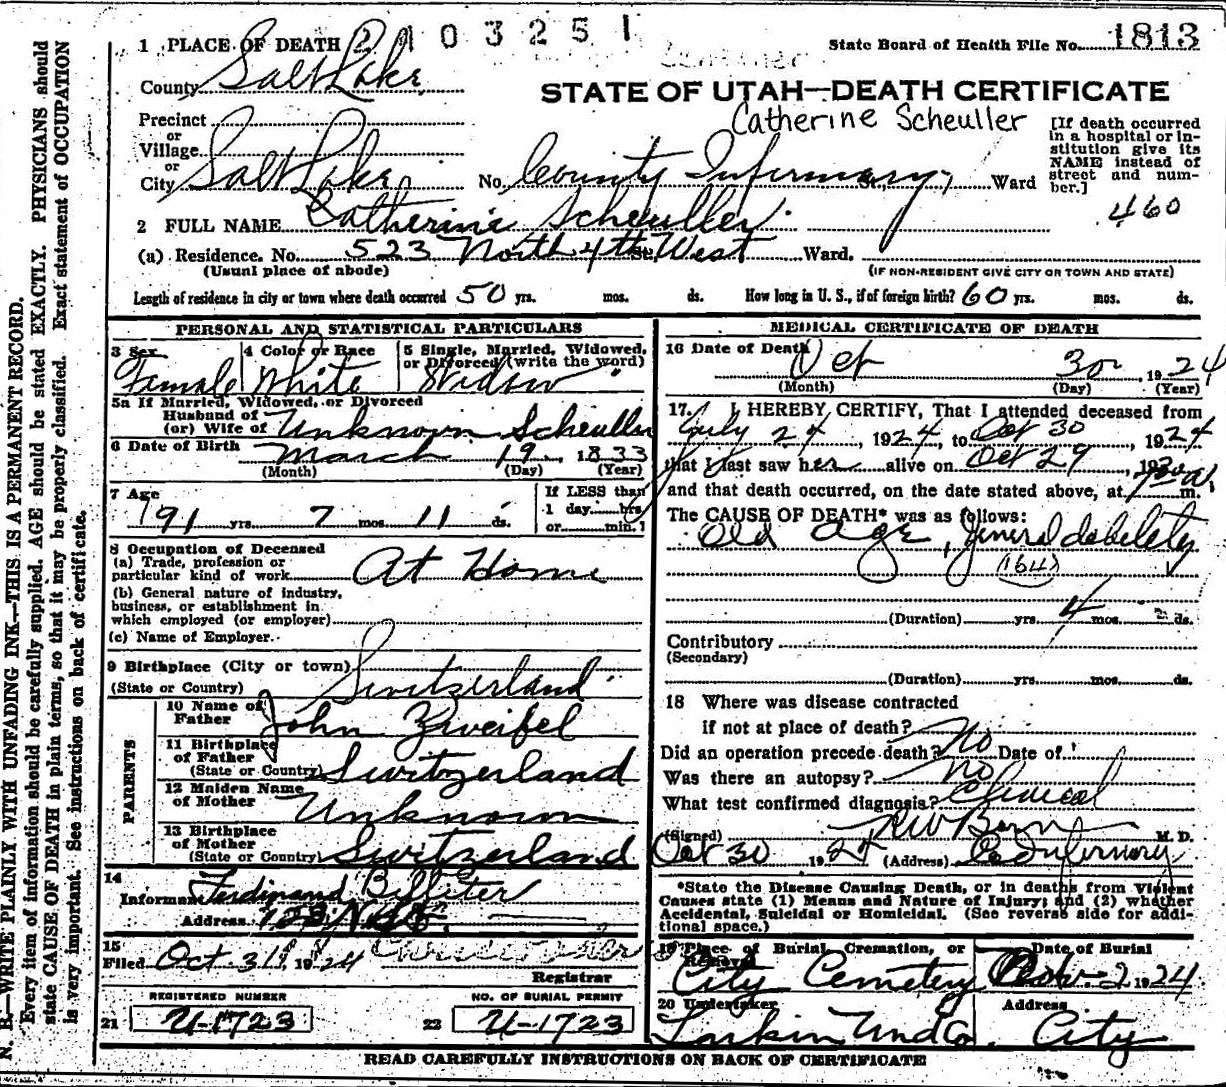 1 PLACE OF DEATH
2 1 0 3 2 5 1
State Board of Health File No. 1813
County Salt Lake
STATE OF UTAH—DEATH CERTIFICATE
Catherine Scheuller
Precinct
or
Village
or
City Salt Lake No. County Infirmary St., Ward
[If death occurred in a hospital or in-
stitution give its
NAME instead of
street and num-
ber.]
460
2 FULL NAME Catherine Scheuller
(a) Residence. No. 523 North 4th St. West Ward.
(Usual place of abode) (IF NON-RESIDENT GIVE CITY OR TOWN AND STATE)
Length of residence in city or town where death occurred 50 yrs. mos. ds. How long in U. S., if of foreign birth? 60 yrs. mos. ds.
PERSONAL AND STATISTICAL PARTICULARS
3 Sex Female
4 Color or Race White
5 Single, Married, Widowed,
or Divorced (write the word)
Widow
5a If Married, Widowed, or Divorced
Husband of
(or) Wife of Unknown Scheuller
6 Date of Birth March 19, 1833
(Month) (Day) (Year)
7 Age 91 yrs. 7 mos. 11 ds.
If LESS than
1 day....hrs.
or....min.?
8 Occupation of Deceased
(a) Trade, profession or
particular kind of work At Home
(b) General nature of industry,
business, or establishment in
which employed (or employer)
(c) Name of Employer
9 Birthplace (City or town)
(State or Country) Switzerland
PARENTS
10 Name of
Father John Zweifel
11 Birthplace
of Father
(State or Country) Switzerland
12 Maiden Name
of Mother Unknown
13 Birthplace
of Mother
(State or Country) Switzerland
14
Informant Ferdinand Billeter
Address
15
Filed Oct. 31, 1924
Registrar
REGISTERED NUMBER
21 U-1723
NO. OF BURIAL PERMIT
22 U-1723
MEDICAL CERTIFICATE OF DEATH
16 Date of Death Oct 30, 1924
(Month) (Day) (Year)
17. I HEREBY CERTIFY, That I attended deceased from
July 24, 1924, to Oct 30, 1924
that I last saw her alive on Oct 29, 19
and that death occurred, on the date stated above, at m.
The CAUSE OF DEATH* was as follows:
Old age, general debility
(164)
(Duration) yrs. 4 mos. ds.
Contributory
(Secondary)
(Duration) yrs. mos. ds.
18 Where was disease contracted
if not at place of death?
Did an operation precede death? No Date of
Was there an autopsy? No
What test confirmed diagnosis? Clinical
(Signed) M. D.
Oct 30 1924 (Address) Co Infirmary
*State the Disease Causing Death, or in deaths from Violent
Causes state (1) Means and Nature of Injury; and (2) whether
Accidental, Suicidal or Homicidal. (See reverse side for addi-
tional space.)
19 Place of Burial, Cremation, or
Removal
City Cemetery
Date of Burial
Nov. 2 1924
20 Undertaker
Larkin Und Co.
Address
City
READ CAREFULLY INSTRUCTIONS ON BACK OF CERTIFICATE
N. B.—WRITE PLAINLY WITH UNFADING INK—THIS IS A PERMANENT RECORD.
Every item of information should be carefully supplied. AGE should be stated EXACTLY. PHYSICIANS should
state CAUSE OF DEATH in plain terms, so that it may be properly classified. Exact statement of OCCUPATION
is very important. See instructions on back of certificate.